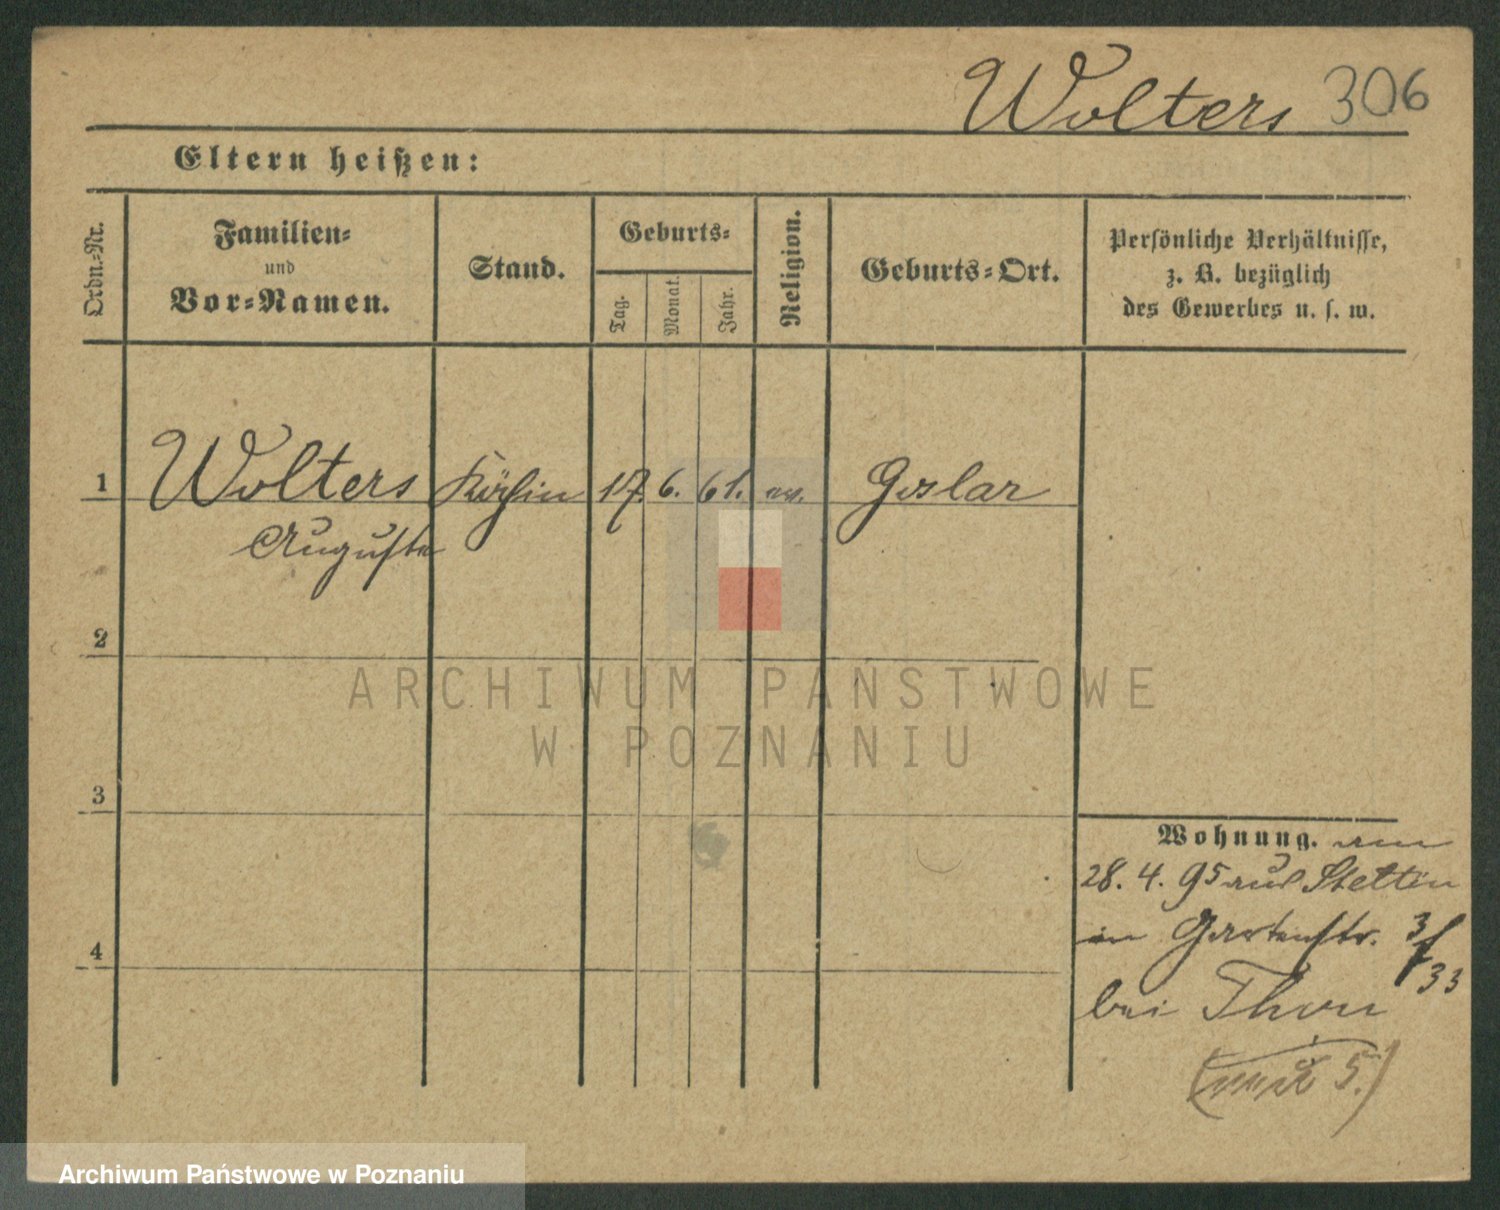 Wolters 306
Eltern heißen:
Ordn.-Nr.
Familien-
und
Vor-Namen.
Stand.
Geburts-
Tag.
Monat.
Jahr.
Religion.
Geburts-Ort.
Persönliche Verhältnisse,
z. B. bezüglich
des Gewerbes u. s. w.
1 Wolters Köchin 17. 6. 61. ev. Goslar
Auguste
2
ARCHIWUM PAŃSTWOWE
W POZNANIU
3
Wohnung. am
28. 4. 95 aus Stettin
in Gartenstr. 3/33
4
bei Thon
5.)
Archiwum Państwowe w Poznaniu